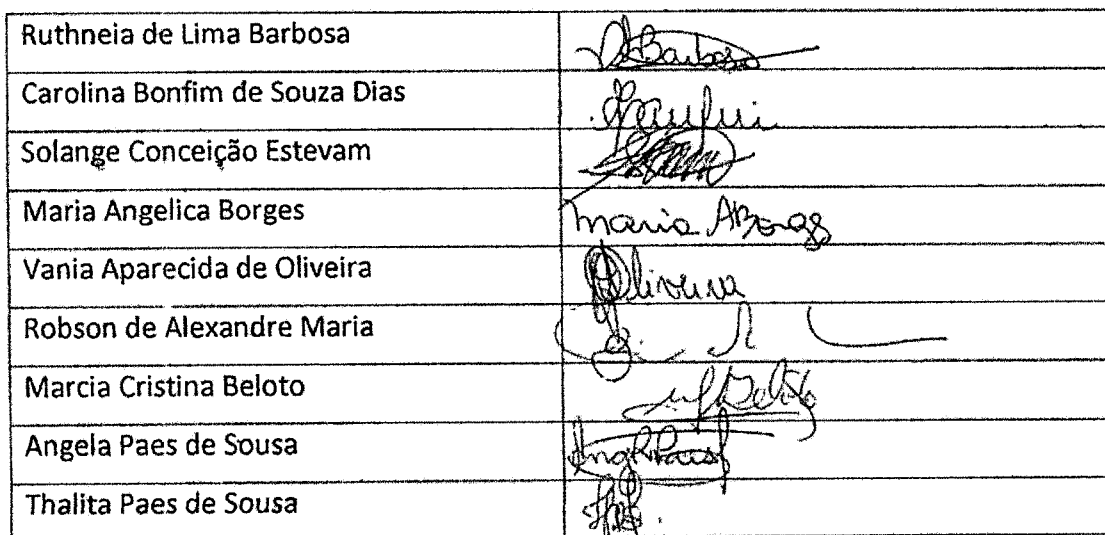 Ruthneia de Lima Barbosa
Carolina Bonfim de Souza Dias
Solange Conceição Estevam
Maria Angelica Borges Maria ABorges
Vania Aparecida de Oliveira Oliveira
Robson de Alexandre Maria
Marcia Cristina Beloto
Angela Paes de Sousa
Thalita Paes de Sousa